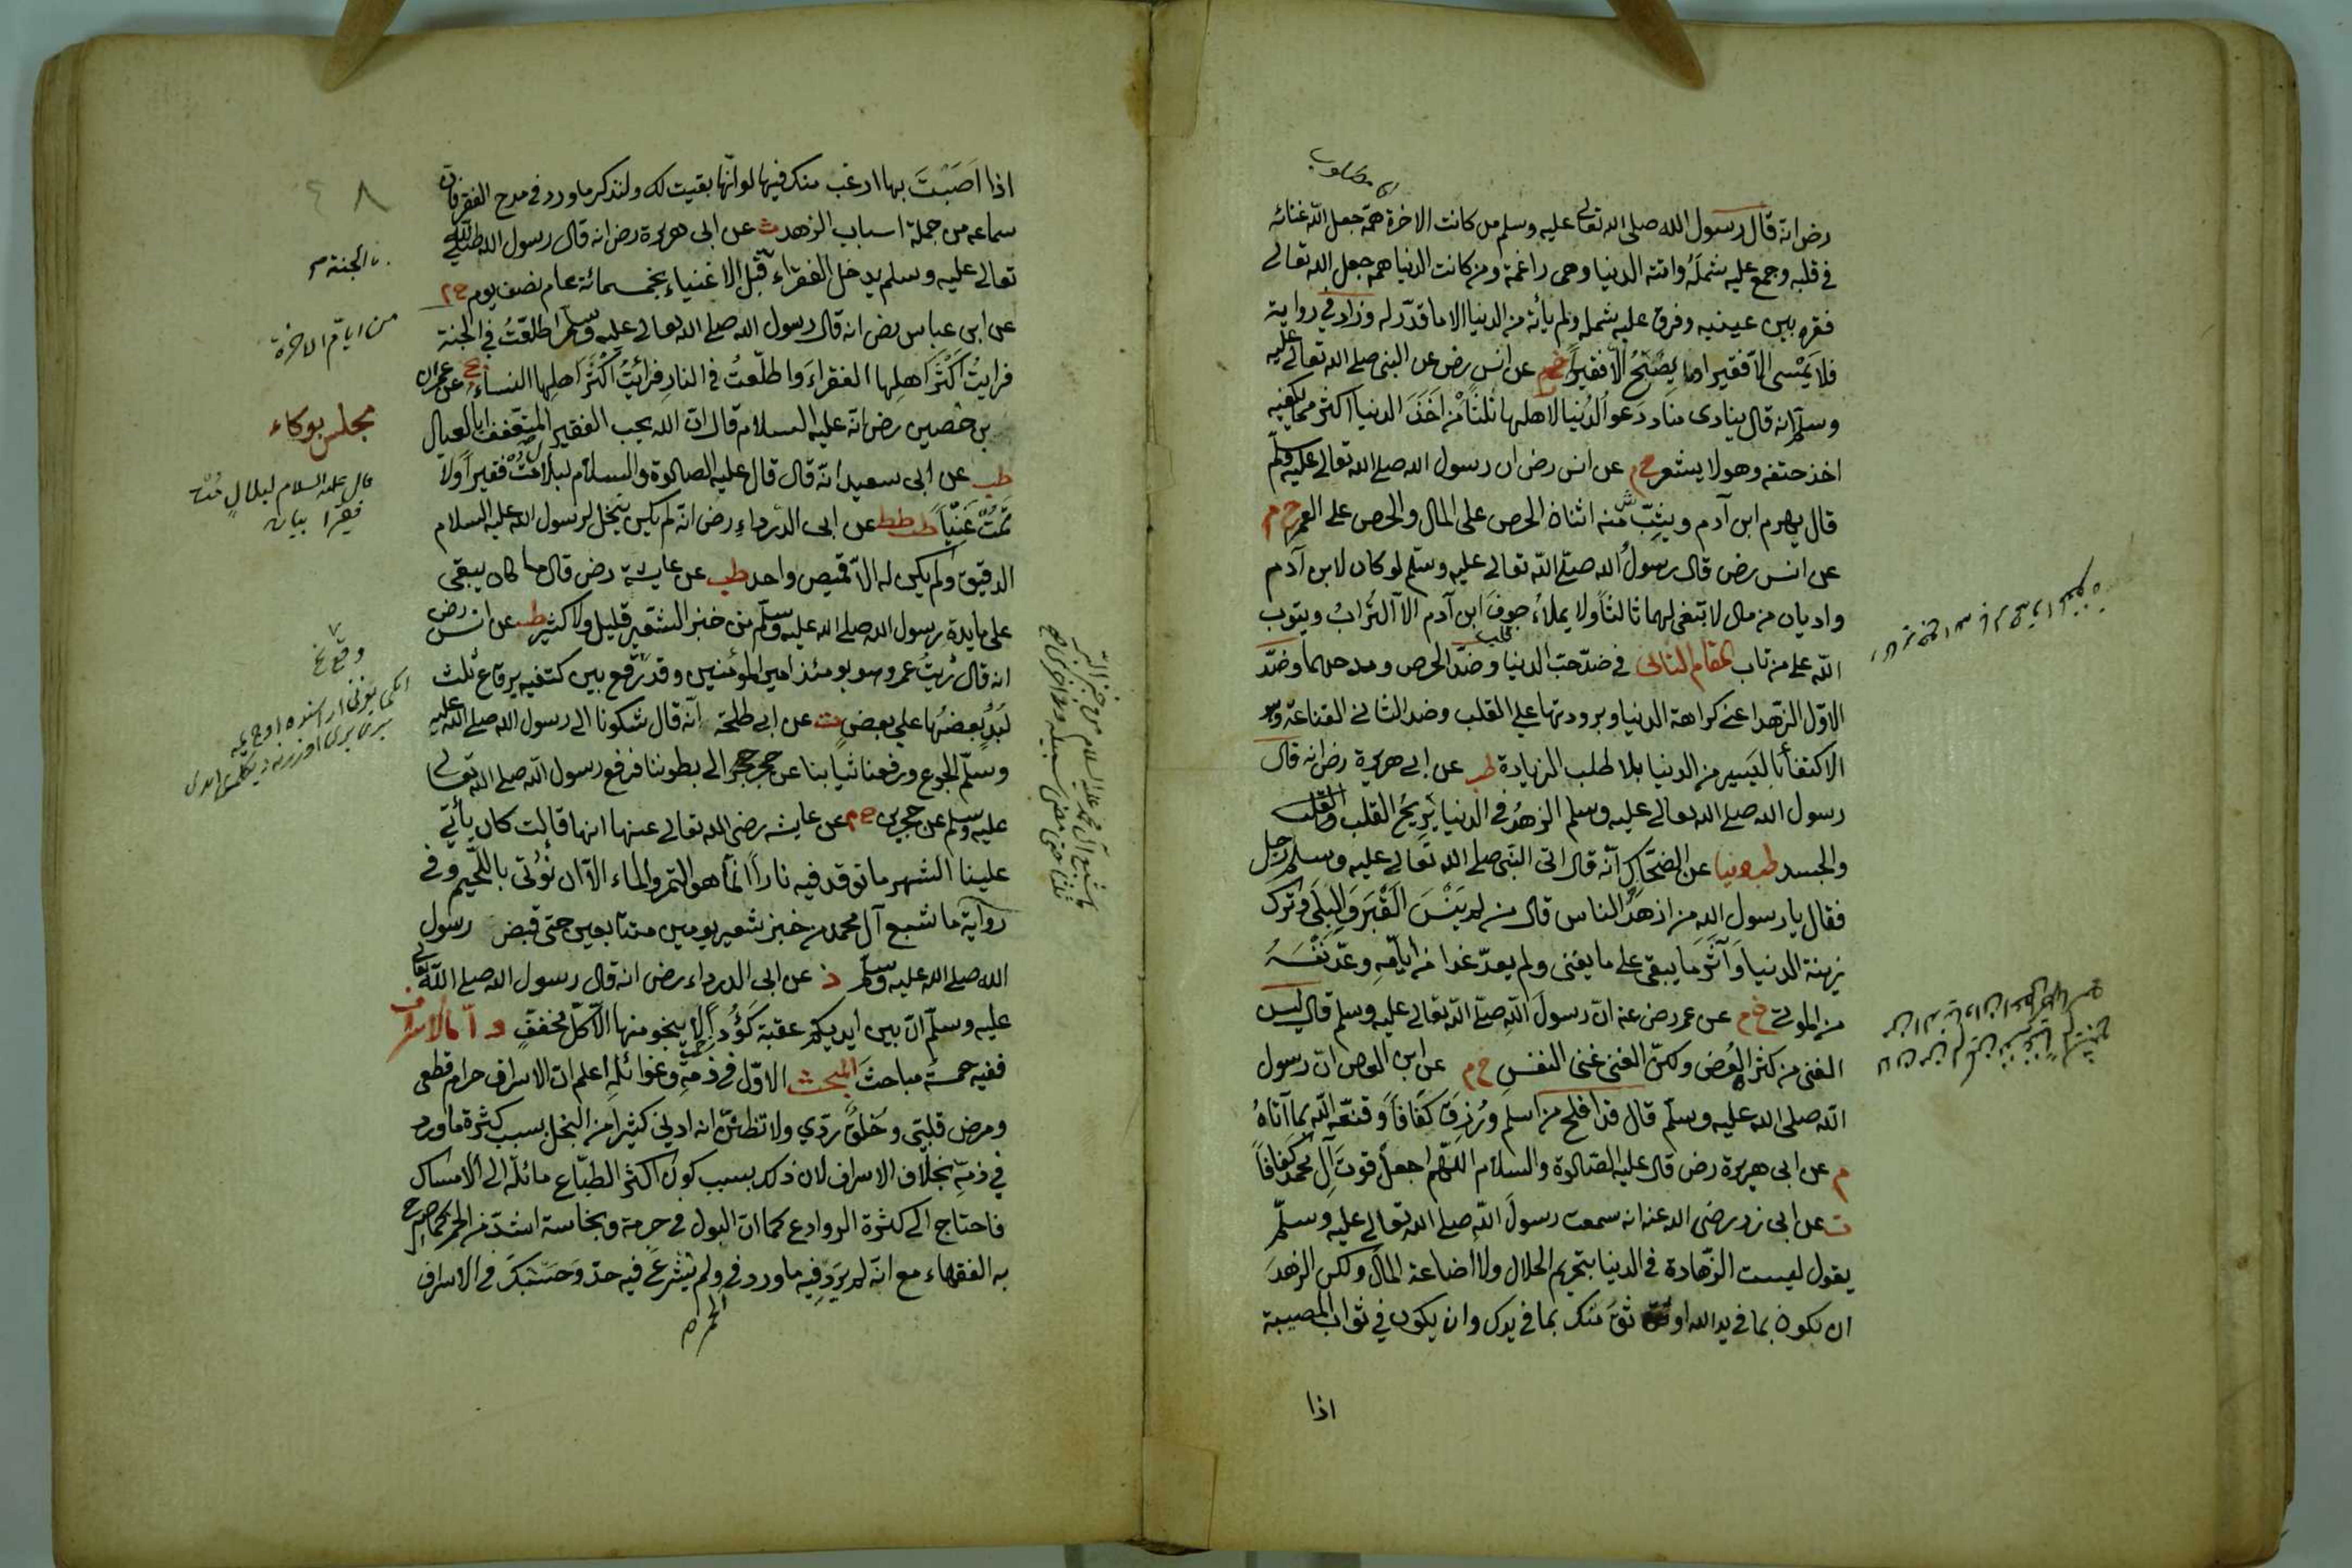 رض انه قال رسول الله صلى الله تعالى عليه وسلم من كانت الاخرة همّه جعل الله غنائه
في قلبه وجمع عليه شملَهُ واتته الدنيا وهى راغمة ومن كانت الدنيا همه جعل الله تعالى
فقره بين عينيه وفرق عليه شمله ولم يأته من الدنيا الا ما قدّر له وزاد في رواية
فلا يَمْسى الّا فقيرا وما يصْبحُ الّا فقيراً خم عن انس رض عن النبى صلى الله تعالى عليه
وسلم انه قال ينادى مناد دَعوا الدُنيا لاهلها ثلثا مْن اَخَذَ الدنيا اكثر مما يكفيه
اخذ حتفه وهو لا يشعر خ م عن انس رض ان رسول الله صلى الله تعالى عليه وسلم
قال يهرم ابن آدم ويشِبّ منه اثنان الحرص على المال والحرص على العمر خ م
عن انس رض قال رسولُ الله صلى الله تعالى عليه وسلم لو كان لابن آدم
واديان من مال لابتغى لهما ثالثاً ولا يملاءُ جوفَ ابن آدم الا التُرابُ ويتوب
الله على من تاب المقام الثانى في ضدّ حبّ الدنيا وضدّ الحرص ومدحهما وضدّ
الاوّل الزّهد اعنى كراهة الدنيا وبرودتها على القلب وضد الثانى القناعة وهو
الاكتفأ باليَسير من الدنيا بلا طلب الزيادة طب عن ابى هريرة رض انه قال
رسول الله صلى الله تعالى عليه وسلم الزهدُ في الدنيا يُريحُ القلب
والجسد طب دنيا عن الضحّاكِ انّه قال اتى النّبى صلى الله تعالى عليه وسلم رجل
فقال يا رسول الله من ازهدُ الناس قال من لم يَنْسَ القَبْرَ وَالبِلَى وَترك
زينة الدنيا وَآثَرَ مَا يبقى على ما يفنى ولم يعدّ غدا من ايّامِهِ وعدّ نَفْسَهُ
من الموتى خ م عن عمر رض عنه انّ رسولَ اللهِ صلّى الله تعالى عليه وسلم قال ليس
الغنى من كثرة العُرض ولكنّ الغنى غنى النفسِ خ م عن ابن العوص انّ رسول
الله صلى الله عليه وسلّم قال قد افلح من اسلم ورُزِقَ كَفَافاً وَقنّعه اللّه بما آتاهُ
م عن ابى هريرة رض قال عليه الصلوة والسلام اللّهُم اجعلْ قوتَ آلِ محمّد كَفَافاً
ت عن ابى ذر رضى الله عنه انه سمعت رسولَ اللهِ صلى الله تعالى عليه وسلّم
يقول ليست الزّهادة في الدنيا بتحريم الحلال ولا اضاعة المال ولكن الزهدَ
ان يكون بما في يد الله اوثق منك بما في يدك وان يكون في ثواب المصيبة
اذا
اذا اَصَبْتَ بها ارغب منك فيها لو انّها بقيت لك ولنذكر ما ورد في مدح الفقر فان
سماعه من جملة اسباب الزهد ت عن ابى هريرة رض انه قال رسول الله صلى الله
تعالى عليه وسلم يدخل الفقراء قَبْل الاغنياء بخمسمائة عام نصف يوم خ م
الجنة
من ايام الاخرة
عن ابن عباس رض انه قال رسول الله صلى الله تعالى عليه وسلم اطلعْتُ في الجنة
فرايتُ اَكْثَرَ اهلِها الفقراءَ وَاطلعْتُ في النارِ فرائيتُ اكْثَر اهلِها النساءُ عن عمران
بن حصين رض انّه عليه السلام قال انّ الله يحب الفقير المتعفف ابا العيال
مجلس بوكاء
طب عن ابى سعيد انّه قال قال عليه الصلوة والسلام لبلال مُتْ فقيراً ولا
قال عليه السلام لبلال مُتْ
فقيرا بيان
تمُتْ غَنِيّاً طط عن ابى الدّرداءِ رض انّه لم يكن ينخل لرسول الله عليه السلام
الدقيق ولم يكن له الّا قميص واحد طب عن عايشة رض قال ما كان يبقى
على مايدةِ رسول الله صلى الله عليه وسلم من خبز الشعير قليل ولا كثير طب عن انس رض
انه قال رئيتُ عمر وهو يومئذ امير المؤمنين وقد رقع بين كتفيه برقاع ثلث
لَبَدَ بعضُها على بعضٍ ت عن ابى طلحة انّه قال شكونا الى رسول الله صلى الله عليه
وسلّم الجوع ورفعنا ثيابنا عن حجر حجر الى بطوننا فرفع رسول الله صلى الله تعالى
عليه وسلم عن حجرين خ م عن عايشه رضى الله تعالى عنها انها قالت كان يأتي
علينا الشهر ما نوقد فيه ناراً انّما هو التمر والماء الّا ان نُؤتى باللّحيم وفى
رواية ما شبع آل محمد من خبز شعير يومين متتابعين حتى قبض رسول
الله صلى الله عليه وسلم ذ عن ابى الدرداء رض انه قال رسول الله صلى الله تعالى
عليه وسلّم انّ بين ايديكم عقبة كَؤُدًا لا ينجو منها الّا كلّ مخففٍ و امّا الاسراف
ففيه خمسةُ مباحثَ المبحث الاوّل في ذمّهِ وغوائله اعلم ان الاسراف حرام قطعى
ومرض قلبّى وَخلقٌ ردّي ولا تظنّنّ انه ادنى كثيرا من البخل بسبب كثرة ما ورد
في ذمّه بخلاف الاسراف لان ذلك بسبب كون اكثر الطبّاع مائله الى الامساك
فاحتاج الى كثرة الروادع كما انّ البول في حرمة ونجاسة اشدّ من الخمر كما صرح
به الفقهاء مع انّه لم يَرِد فيه ما ورد فى ولم يُشرع فيه حدّ وَحَسْبُكَ في الاسراف
الخمر